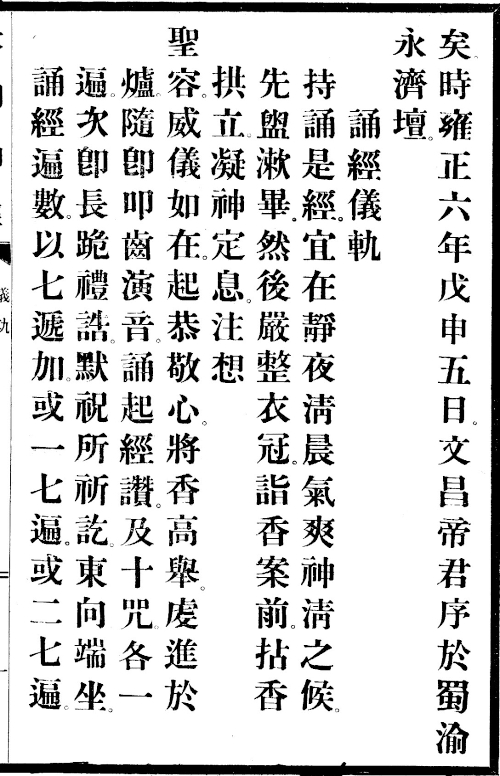 矣時雍正六年戊申五日。文昌帝君序於蜀渝
永濟壇。
誦經儀軌
持誦是經。宜在靜夜淸晨氣爽神淸之候。
先盥漱畢。然後嚴整衣冠。詣香案前。拈香
拱立。凝神定息。注想
聖容。威儀如在。起恭敬心。將香高舉。虔進於
爐。隨卽叩齒演音。誦起經讚。及十咒。各一
遍。次卽長跪禮誥。默祝所祈訖。東向端坐。
誦經遍數。以七遞加。或一七遍。或二七遍。
儀軌